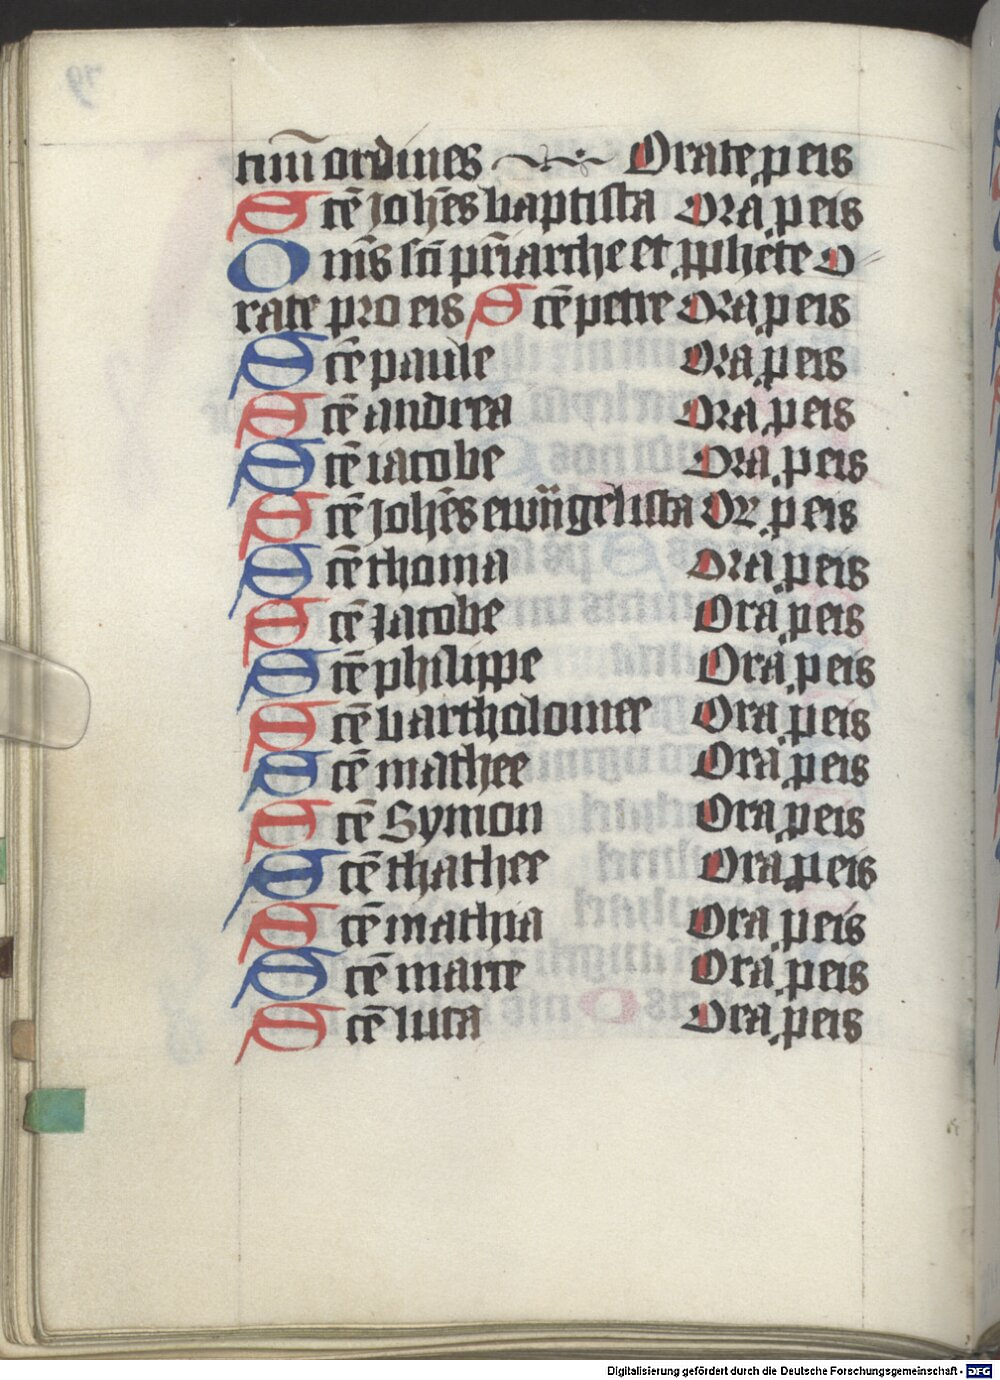 tuũ ordines Orate ꝑ eis
Scẽ Johẽs baptista Ora ꝑ eis
Om̃s sc̃i pr̃iarche et ꝓphete O
rate pro eis Scẽ petre Ora ꝑ eis
Scẽ paule Ora ꝑ eis
Scẽ andrea Ora ꝑ eis
Scẽ iacobe Ora ꝑ eis
Scẽ Johẽs ewãgelista Or ꝑ eis
Scẽ thoma Ora ꝑ eis
Scẽ Jacobe Ora ꝑ eis
Scẽ philippe Ora ꝑ eis
Scẽ bartholomee Ora ꝑ eis
Scẽ mathee Ora ꝑ eis
Scẽ Symon Ora ꝑ eis
Scẽ thathee Ora ꝑ eis
Scẽ mathia Ora ꝑ eis
Scẽ marce Ora ꝑ eis
Scẽ luca Ora ꝑ eis
Digitalisierung gefördert durch die Deutsche Forschungsgemeinschaft - DFG